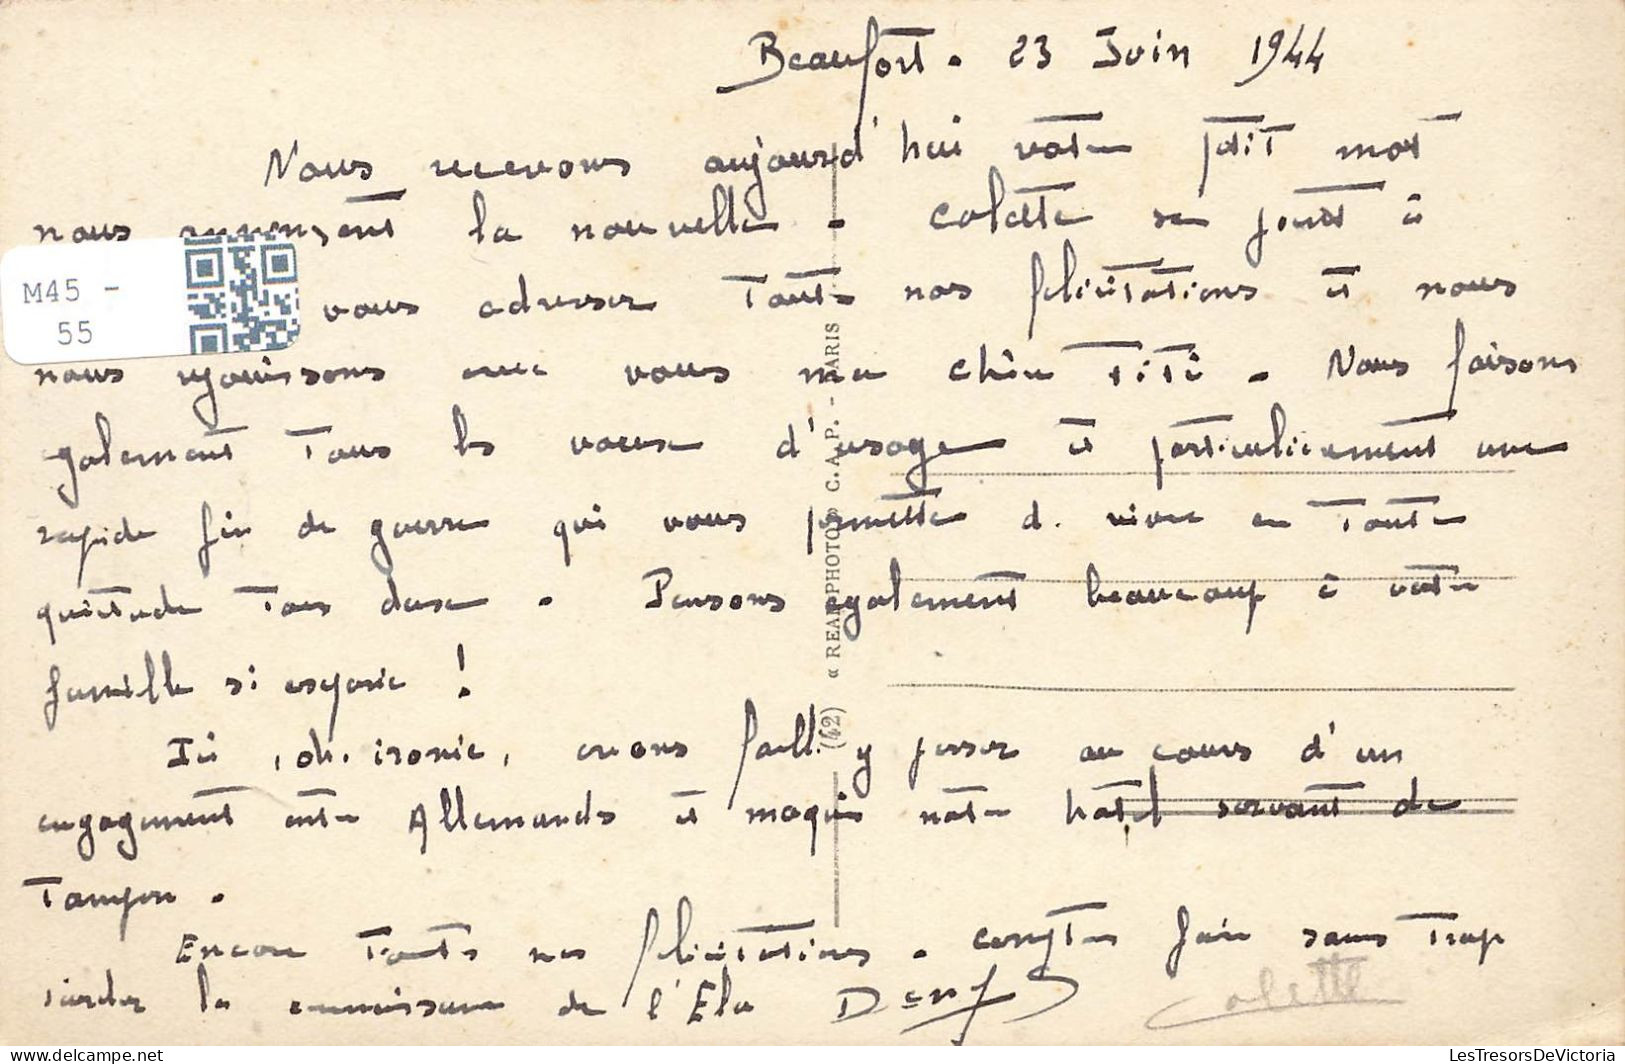 Beaufort. 23 Juin 1944
Nous recevons aujourd'hui votre petit mot
nous annonçant la nouvelle. Colette se joint à
vous adresser toutes nos félicitations et nous
nous réjouissons avec vous ma chère Titi. Nous faisons
également tous les voeux d'usage et particulièrement une
rapide fin de guerre qui vous permette de vivre en toute
quiétude tous deux. Pensons également beaucoup à votre
famille si espacée !
Ici, oh ironie, avons failli y passer au cours d'un
engagement entre Allemands et maquis notre hôtel servant de
Tampon.
Encore toutes nos félicitations. Comptons faire sans trop
tarder la connaissance de l'Elu Denys Colette
M45 -
55
(42) « REAL-PHOTO » C. A. P. - PARIS
LesTresorsDeVictoria
delcampe.net